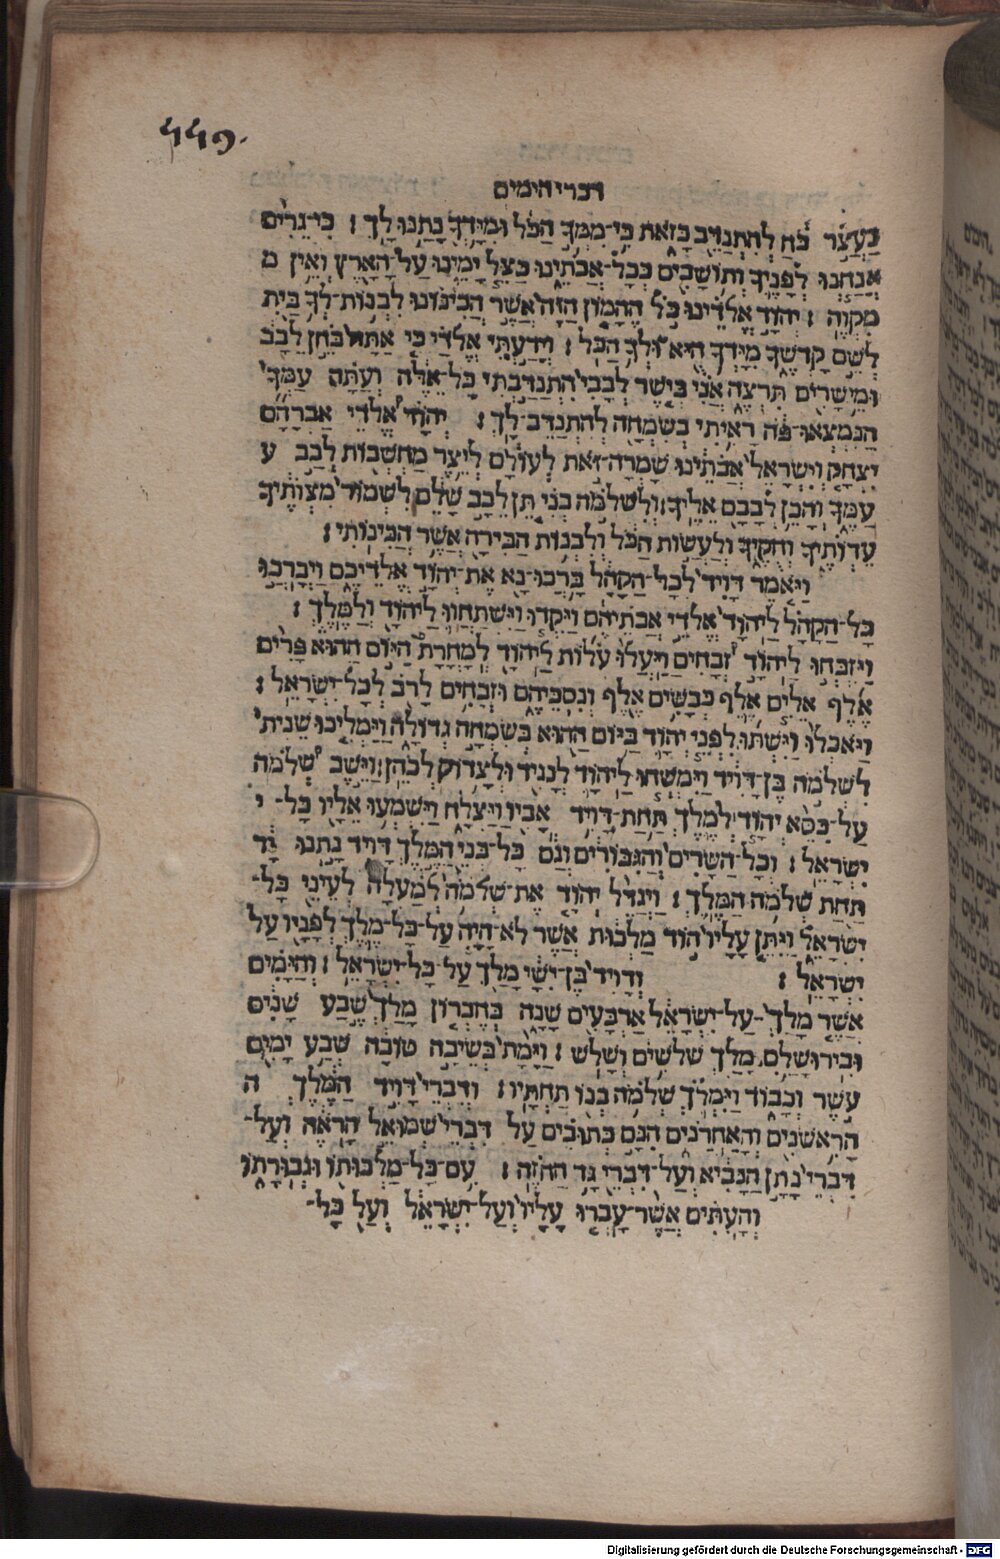 449.
דברי הימים
נַעְצֹר כֹּחַ לְהִתְנַדֵּב כָּזֹאת כִּי־מִמְּךָ הַכֹּל וּמִיָּדְךָ נָתַנּוּ לָךְ : כִּי־גֵרִים
אֲנַחְנוּ לְפָנֶיךָ וְתוֹשָׁבִים כְּכָל־אֲבֹתֵינוּ כַּצֵּל יָמֵינוּ עַל־הָאָרֶץ וְאֵין מ
מִקְוֶה : יְהוָֹד אֱלֹדֵינוּ כֹּל הֶהָמוֹן הַזֶּה אֲשֶׁר הֲכִינֹונוּ לִבְנוֹת־לְךָ בַיִת
לְשֵׁם קָדְשֶׁךָ מִיָּדְךָ הִיא וּלְךָ הַכֹּל : וְיָדַעְתִּי אֱלֹדַי כִּי אַתָּה בֹּחֵן לֵבָב
וּמֵישָׁרִים תִּרְצֶה אֲנִי בְּיֹשֶׁר לְבָבִי הִתְנַדַּבְתִּי כָל־אֵלֶּה וְעַתָּה עַמְּךָ
הַנִּמְצְאוּ־פֹה רָאִיתִי בְשִׂמְחָה לְהִתְנַדֶּב־לָךְ : יְהוָֹד אֱלֹדֵי אַבְרָהָם
יִצְחָק וְיִשְׂרָאֵל אֲבֹתֵינוּ שָׁמְרָה־זֹּאת לְעוֹלָם לְיֵצֶר מַחְשְׁבוֹת לְבַב ע
עַמֶּךָ וְהָכֵן לְבָבָם אֵלֶיךָ : וְלִשְׁלֹמֹה בְנִי תֵּן לֵבָב שָׁלֵם לִשְׁמוֹר מִצְוֹתֶיךָ
עֵדְוֹתֶיךָ וְחֻקֶּיךָ וְלַעֲשׂוֹת הַכֹּל וְלִבְנוֹת הַבִּירָה אֲשֶׁר הֲכִינוֹתִי :
וַיֹּאמֶר דָּוִיד לְכָל־הַקָּהָל בָּרֲכוּ־נָא אֶת־יְהוָֹד אֱלֹדֵיכֶם וַיְבָרֲכוּ
כָל־הַקָּהָל לַיהוָֹד אֱלֹדֵי אֲבֹתֵיהֶם וַיִּקְּדוּ וַיִּשְׁתַּחֲווּ לַיהוָֹד וְלַמֶּלֶךְ :
וַיִּזְבְּחוּ לַיהוָֹד זְבָחִים וַיַּעֲלוּ עֹלוֹת לַיהוָֹד לְמָחֳרָת הַיּוֹם הַהוּא פָּרִים
אֶלֶף אֵלִים אֶלֶף כְּבָשִׂים אֶלֶף וְנִסְכֵּיהֶם וּזְבָחִים לָרֹב לְכָל־יִשְׂרָאֵל :
וַיֹּאכְלוּ וַיִּשְׁתּוּ לִפְנֵי יְהוָֹד בַּיּוֹם הַהוּא בְּשִׂמְחָה גְדוֹלָה וַיַּמְלִיכוּ שֵׁנִית
לִשְׁלֹמֹה בֶן־דָּוִיד וַיִּמְשְׁחוּ לַיהוָֹד לְנָגִיד וּלְצָדוֹק לְכֹהֵן : וַיֵּשֶׁב שְׁלֹמֹה
עַל־כִּסֵּא יְהוָֹד לְמֶלֶךְ תַּחַת־דָּוִיד אָבִיו וַיַּצְלַח וַיִּשְׁמְעוּ אֵלָיו כָּל־ י
יִשְׂרָאֵל : וְכָל־הַשָּׂרִים וְהַגִּבּוֹרִים וְגַם כָּל־בְּנֵי הַמֶּלֶךְ דָּוִיד נָתְנוּ יָד
תַּחַת שְׁלֹמֹה הַמֶּלֶךְ : וַיְגַדֵּל יְהוָֹד אֶת־שְׁלֹמֹה לְמַעְלָה לְעֵינֵי כָּל־
יִשְׂרָאֵל וַיִּתֵּן עָלָיו הוֹד מַלְכוּת אֲשֶׁר לֹא־הָיָה עַל־כָּל־מֶלֶךְ לְפָנָיו עַל
יִשְׂרָאֵל : וְדָוִיד בֶּן־יִשַׁי מָלַךְ עַל־כָּל־יִשְׂרָאֵל : וְהַיָּמִים
אֲשֶׁר מָלַךְ־עַל־יִשְׂרָאֵל אַרְבָּעִים שָׁנָה בְּחֶבְרוֹן מָלַךְ שֶׁבַע שָׁנִים
וּבִירוּשָׁלִַם מָלַךְ שְׁלֹשִׁים וְשָׁלֹשׁ : וַיָּמָת בְּשֵׂיבָה טוֹבָה שְׂבַע יָמִים
עֹשֶׁר וְכָבוֹד וַיִּמְלֹךְ שְׁלֹמֹה בְנוֹ תַּחְתָּיו : וְדִבְרֵי דָּוִיד הַמֶּלֶךְ ה
הָרִאשֹׁנִים וְהָאַחֲרֹנִים הִנָּם כְּתוּבִים עַל דִּבְרֵי שְׁמוּאֵל הָרֹאֶה וְעַל־
דִּבְרֵי נָתָן הַנָּבִיא וְעַל־דִּבְרֵי גָּד הַחֹזֶה : עִם־כָּל־מַלְכוּתוֹ וּגְבוּרָתוֹ
וְהָעִתִּים אֲשֶׁר־עָבְרוּ עָלָיו וְעַל־יִשְׂרָאֵל וְעַל כָּל־
Digitalisierung gefördert durch die Deutsche Forschungsgemeinschaft - DFG